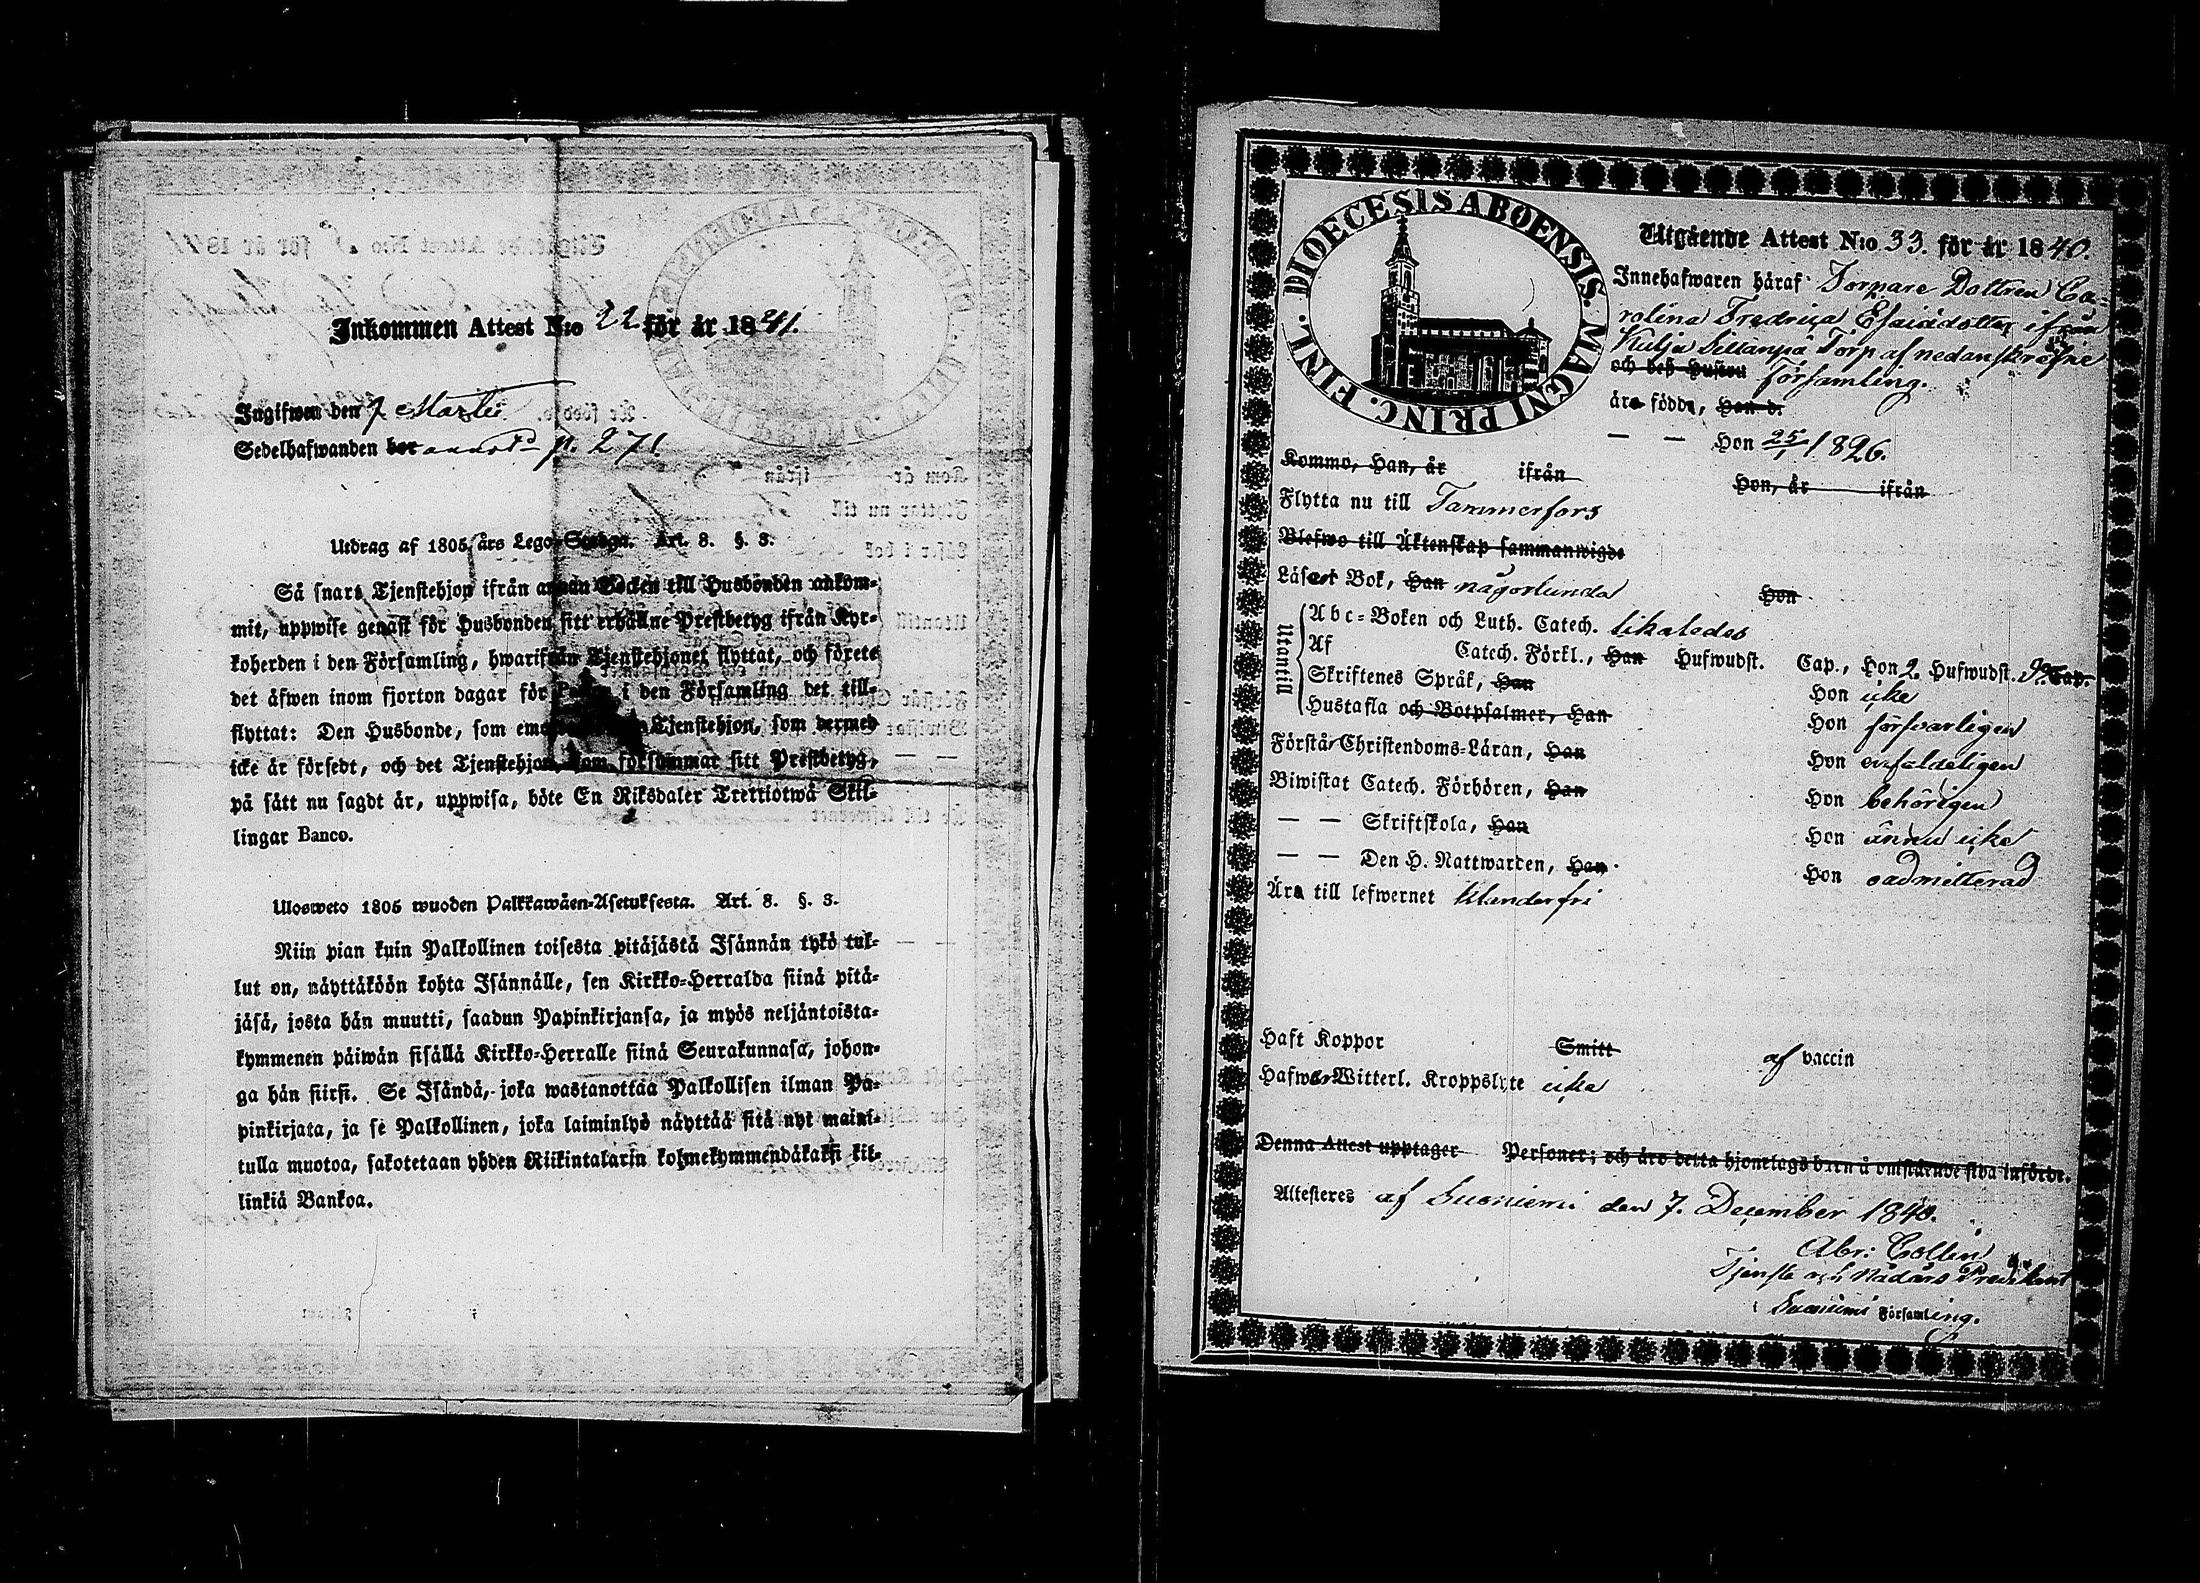 Inkommen Attest N:o 22 för år 1841.
Ingifwen den 7 Martii
Sedelhafwanden bor annot. p. 271
Utdrag af 1805 års Lego-Stadga. Art. 8. §. 3.
Så snart Tjenstehjon ifrån annan Socken till Husbonden ankom-
mit, uppwise genast för Husbonden sitt erhållne Prestbetyg ifrån Kyr-
koherden i den Församling, hwarifrån Tjenstehjonet flyttat, och förete
det äfwen inom fjorton dagar för i den Församling det till-
flyttat: Den Husbonde, som Tjenstehjon, som dermed
icke är försedt, och det Tjenstehjon, som försummar sitt Prestbetyg,
på sätt nu sagdt är, uppwisa, böte En Riksdaler Trettiotwå Skil-
lingar Banco.
Ulosweto 1805 wuoden Palkkawäen-Asetuksesta. Art. 8. §. 3.
Niin pian kuin Palkollinen toisesta pitäjästä Isännän tykö tul-
lut on, näyttäköön kohta Isännälle, sen Kirkko-Herralda siinä pitä-
jäsä, josta hän muutti, saadun Papinkirjansa, ja myös neljäntoista-
kymmenen päiwän sisällä Kirkko-Herralle siinä Seurakunnasa, johon-
ga hän siirsi. Se Isändä, joka wastanottaa Palkollisen ilman Pa-
pinkirjata, ja se Palkollinen, joka laiminlyö näyttää sitä nyt mainit-
tulla muotoa, sakotetaan yhden Riikintalarin kolmekymmendäkaksi kil-
linkiä Bankoa.
DIOECESIS ABOENSIS. MAGNI PRINC. FINL.
Utgående Attest N:o 33. för år 1840.
Innehafwaren häraf Torpare Dottren Ca-
rolina Fredrica Esaiædotter ifrån
Kulju Sillanpä Torp af nedanskrefne
och deß Hustru församling.
äro födde, Han d.
— — Hon 25/1 1826.
Kommo, Han, år ifrån Hon, år ifrån
Flytta nu till Tammerfors
Blefwo till Äktenskap sammanwigde
Läser i Bok, Han någorlunda Hon
Utantill
Abc-Boken och Luth. Catech. likaledes
Af Catech. Förkl., Han Hufwudst. Cap., Hon 2. Hufwudst. Cap.
Skriftenes Språk, Han Hon icke
Hustafla och Botpsalmer, Han Hon försvarligen
Förstår Christendoms-Läran, Han Hon enfaldeligen
Biwistat Catech. Förhören, Han Hon behörigen
— — Skriftskola, Han Hon ännu icke
— — Den H. Nattwarden, Han Hon oadmitterad
Äro till lefwernet klanderfri
Haft Koppor Smitt af vaccin
Hafwer Witterl. Kroppslyte icke
Denna Attest upptager Personer; och äro detta hjonelags barn å omstående sida införde.
Attesteres af Suoniemi den 7. December 1840.
Abr: Collin
Tjenste och Nådårs Predikant
i Suoniemi Församling.